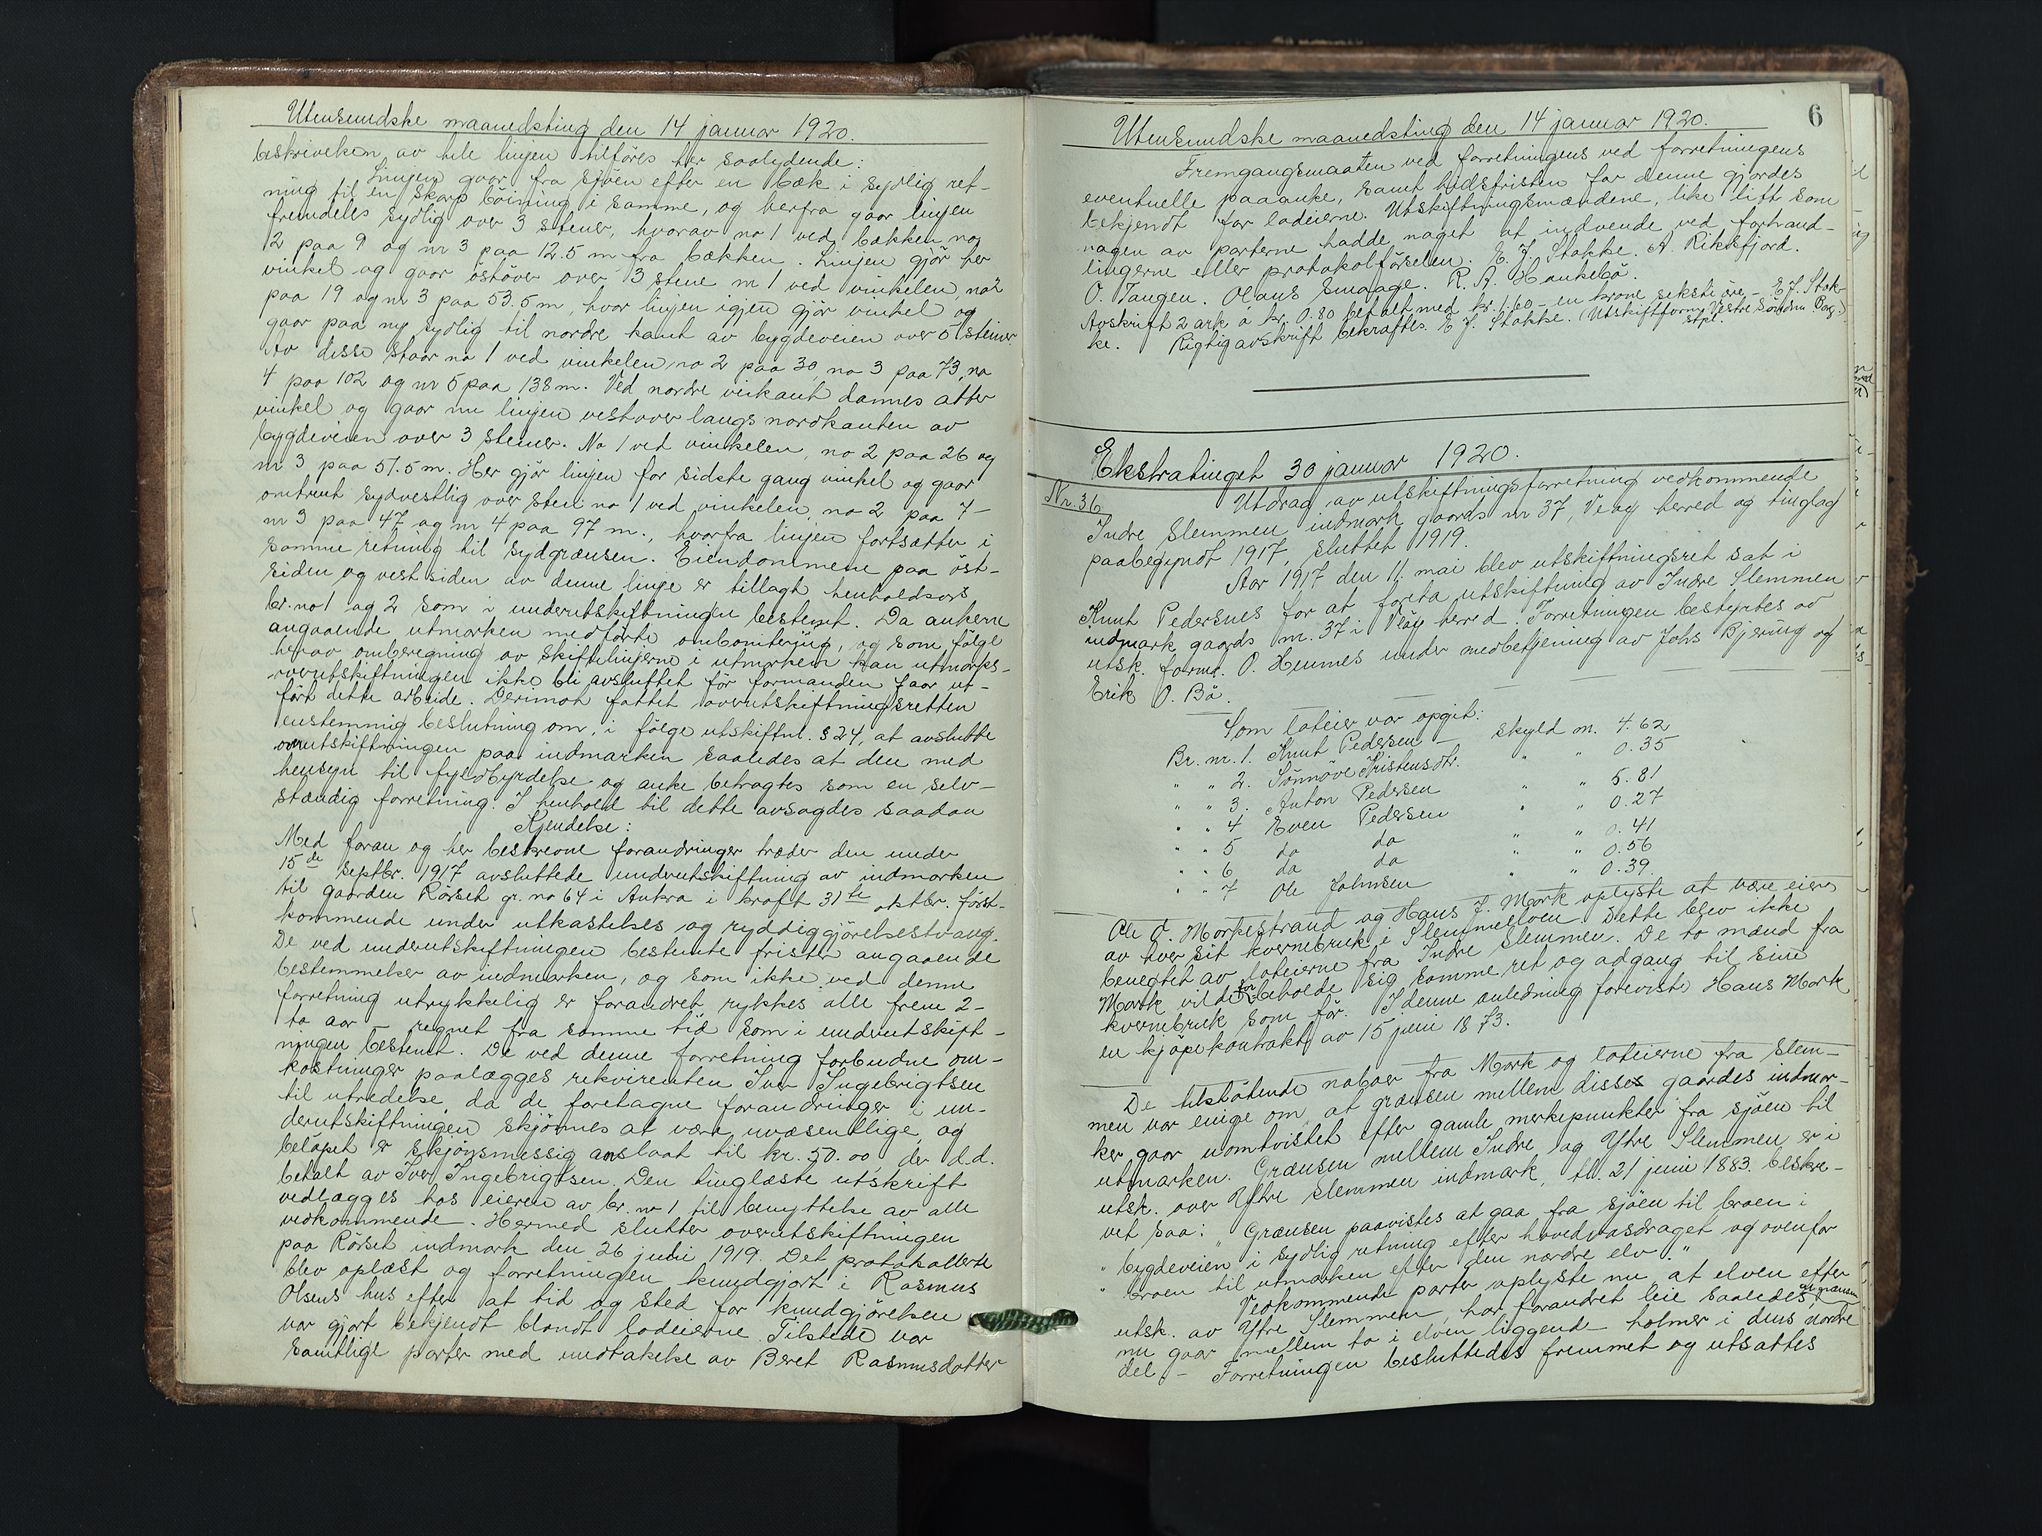 Utensundske maanedsting den 14 januar 1920.
beskrivelsen av hele linjen tilføres her saalydende:
Linjen gaar fra sjøen efter en bæk i sydlig ret-
ning til en skarp bøining i samme, og herfra gaar linjen
fremdeles sydlig over 3 stener, hvorav no 1 ved bækken, no
2 paa 9 og nr 3 paa 12.5 m fra bækken. Linjen gjør her
vinkel og gaar østover over 3 stene nr 1 ved vinkelen, no 2
paa 19 og nr 3 paa 53.5 m, hvor linjen igjen gjør vinkel og
gaar paa ny sydlig til nordre kant av bygdeveien over 5 steiner.
Av disse staar no 1 ved vinkelen, no 2 paa 30, no 3 paa 73, no
4 paa 102 og nr 5 paa 138 m. Ved nordre veikant dannes atter
vinkel og gaar nu linjen vestover langs nordkanten av
bygdeveien over 3 steiner. No 1 ved vinkelen, no 2 paa 26 og
nr 3 paa 51.5 m. Her gjør linjen for sidste gang vinkel og gaar
omtrent sydvestlig over sten no 1 ved vinkelen, no 2 paa 7-
nr 3 paa 47 og nr 4 paa 97 m., hvorfra linjen fortsætter i
samme retning til sydgrænsen. Eiendommene paa øst-
siden og vestsiden av denne linje er tillagt henholdsvis
br. no 1 og 2 som i underutskiftningen bestemt. Da ankerne
angaaende utmarken medførte ombonitering, og som følge
herav omberegning av skiftelinjerne i utmarken kan utmarks-
overutskiftningen ikke bli avsluttet før formanden faar ut-
ført dette arbeide. Derimot fattet overutskiftningsretten
enstemmig beslutning om, i følge utskiftnl. § 24, at avslutte
overutskiftningen paa indmarken saaledes at den med
hensyn til fyldbyrdelse og anke betragtes som en selv-
stændig forretning. I henhold til dette avsagdes saadan
Kjendelse:
Med foran og her beskrevne forandringer træder den under
15de septbr. 1917 avsluttede underutskiftning av indmarken
til gaarden Rørset gr. no 64 i Aukra i kraft 31te oktbr. først-
kommende under utkastelses og ryddiggjørelsestvang.
De ved underutskiftningen bestemte frister angaaende
bestemmelser av indmarken, og som ikke ved denne
forretning utrykkelig er forandret rykkes alle frem 2-
to aar - regnet fra samme tid som i underutskift-
ningen bestemt. De ved denne forretning forbundne om-
kostninger paalægges rekvirenten Iver Ingebrigtsen
til utredelse, da de foretagne forandringer i un-
derutskiftningen skjønnes at være uvæsentlige, og
beløpet er skjønsmessig anslaat til kr. 50.00, der d.d.
betalt av Iver Ingebrigtsen. Den tinglæste utskrift
vedlægges hos eieren av br. no 1 til benyttelse av alle
vedkommende. Hermed slutter overutskiftningen
paa Rørset indmark den 26 juli 1919. Det protokollerte
blev oplæst og forretningen kundgjort i Rasmus
Olsens hus efter at tid og sted for kundgjørelsen
var gjort bekjendt blandt lodeierne. Tilstede var
samtlige parter med undtakelse av Beret Rasmusdatter
6
Utensundske maanedsting den 14 januar 1920.
Fremgangsmaaten ved forretningens ved forretningens
eventuelle paaanke, samt tidsfristen for denne gjordes
bekjendt for lodeierne. Utskiftningsmændene, like litt som
nogen av parterne hadde noget at indvende ved forhand-
lingerne eller protokolførselen. E. J. Stakke. A. Riksfjord.
O. Tangen. Olaus Smaage. R. A. Hankebø.
Avskrift 2 ark à kr. 0.80 betalt med kr. 1.60 - en krone seksti øre - E. J. Stak-
ke. Rigtig avskrift bekræftes. E. J. Stakke. (Utskiftform. Vestre Søndm. Rog.)
stpl.
Ekstratinget 30 januar 1920.
Nr. 36
Utdrag av utskiftningsforretning vedkommende
Indre Slemmen indmark gaards nr 37, Veøy herred og tinglag
paabegyndt 1917, sluttet 1919.
Aar 1917 den 11. mai blev utskiftningsret sat i
Knut Pedersens for at foreta utskiftning av Indre Slemmen
indmark gaards nr. 37 i Veøy herred. Forretningen bestyrtes av
utsk. formd. O. Hennes under medbetjening av Johs Bjering og
Erik O. Bø.
Som loteier var opgit:
Br. nr. 1. Knut Pedersen - skyld m. 4.62
" " 2. Sønnøve Kristensdtr. " " 0.35
" " 3. Anton Pedersen " " 5.81
" " 4 Even Pedersen " " 0.27
" " 5 do do " " 0.41
" " 6 do do " " 0.56
" " 7 Ole Johnsen " " 0.39
Ole O. Morkestrand og Hans J. Mork oplyste at være eiere
av hver sit kvernebruk i Slemmelven. Dette blev ikke
benegtet av loteierne fra Indre Slemmen. De to mænd fra
Mork vilde for beholde sig samme ret og adgang til sine
kvernebruk som før. I denne anledning foreviste Hans Mork
en kjøpekontrakt av 15 juni 1873.
De tilstøtende naboer fra Mork og loteierne fra Slem-
men var enige om, at grænsen mellem disses gaardes indmar-
ker gaar uomtvistet efter gamle merkepunkter fra sjøen til
utmarken. Grænsen mellem Indre og Ytre Slemmen er i
utsk. over Ytre Slemmen indmark, tl. 21 juni 1883 beskre-
vet saa: " Grænsen paavistes at gaa fra sjøen til broen i
" bygdeveien i sydlig retning efter hovedvasdraget og ovenfor
" broen til utmarken efter den nordre elv. "
Vedkommende parter oplyste nu, at elven efter
utsk. av Ytre Slemmen, har forandret leie saaledes, at grænsen
nu gaar mellem to i elven liggende holmer i dens nordre
del. - Forretningen besluttedes fremmet og utsattes